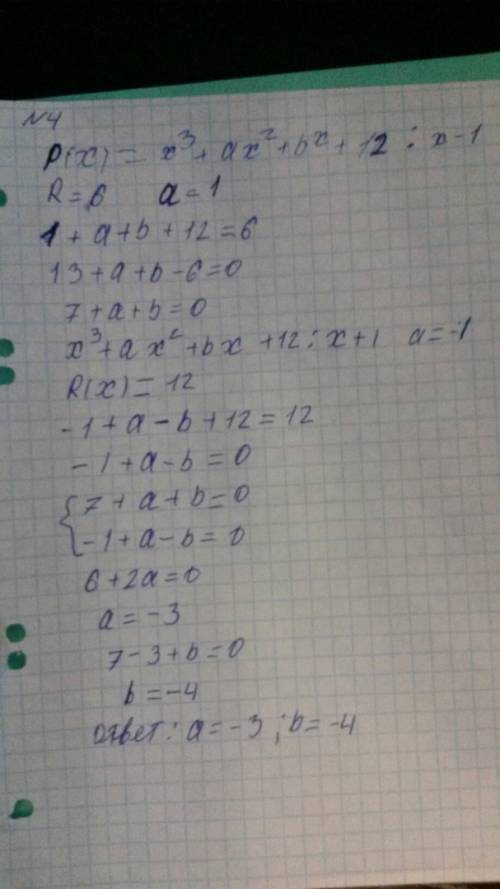 №4
P(x) = x³ + ax² + bx + 12 : x - 1
R = 6 a = 1
1 + a + b + 12 = 6
13 + a + b - 6 = 0
7 + a + b = 0
x³ + ax² + bx + 12 : x + 1 a = -1
R(x) = 12
-1 + a - b + 12 = 12
-1 + a - b = 0
{ 7 + a + b = 0
-1 + a - b = 0
6 + 2a = 0
a = -3
7 - 3 + b = 0
b = -4
ответ: a = -3 ; b = -4